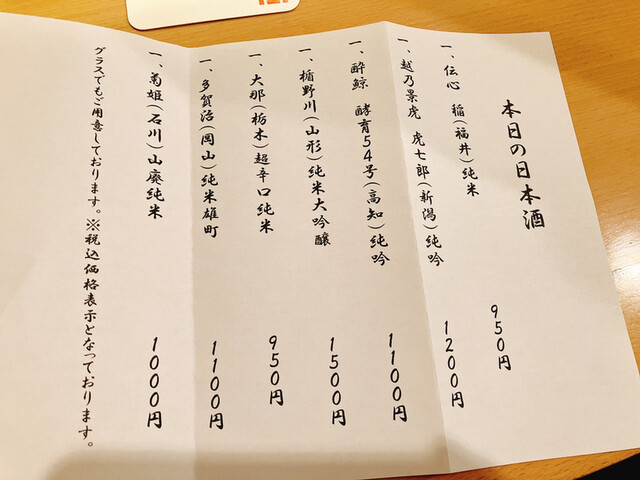 本日の日本酒
一、伝心 稲(福井)純米 950円
一、越乃景虎 虎七郎(新潟)純吟 1200円
一、酔鯨 酵育54号(高知)純吟 1100円
一、楯野川(山形)純米大吟醸 1500円
一、大那(栃木)超辛口純米 950円
一、多賀治(岡山)純米雄町 1100円
一、菊姫(石川)山廃純米 1000円
グラスでもご用意しております。※税込価格表示となっております。